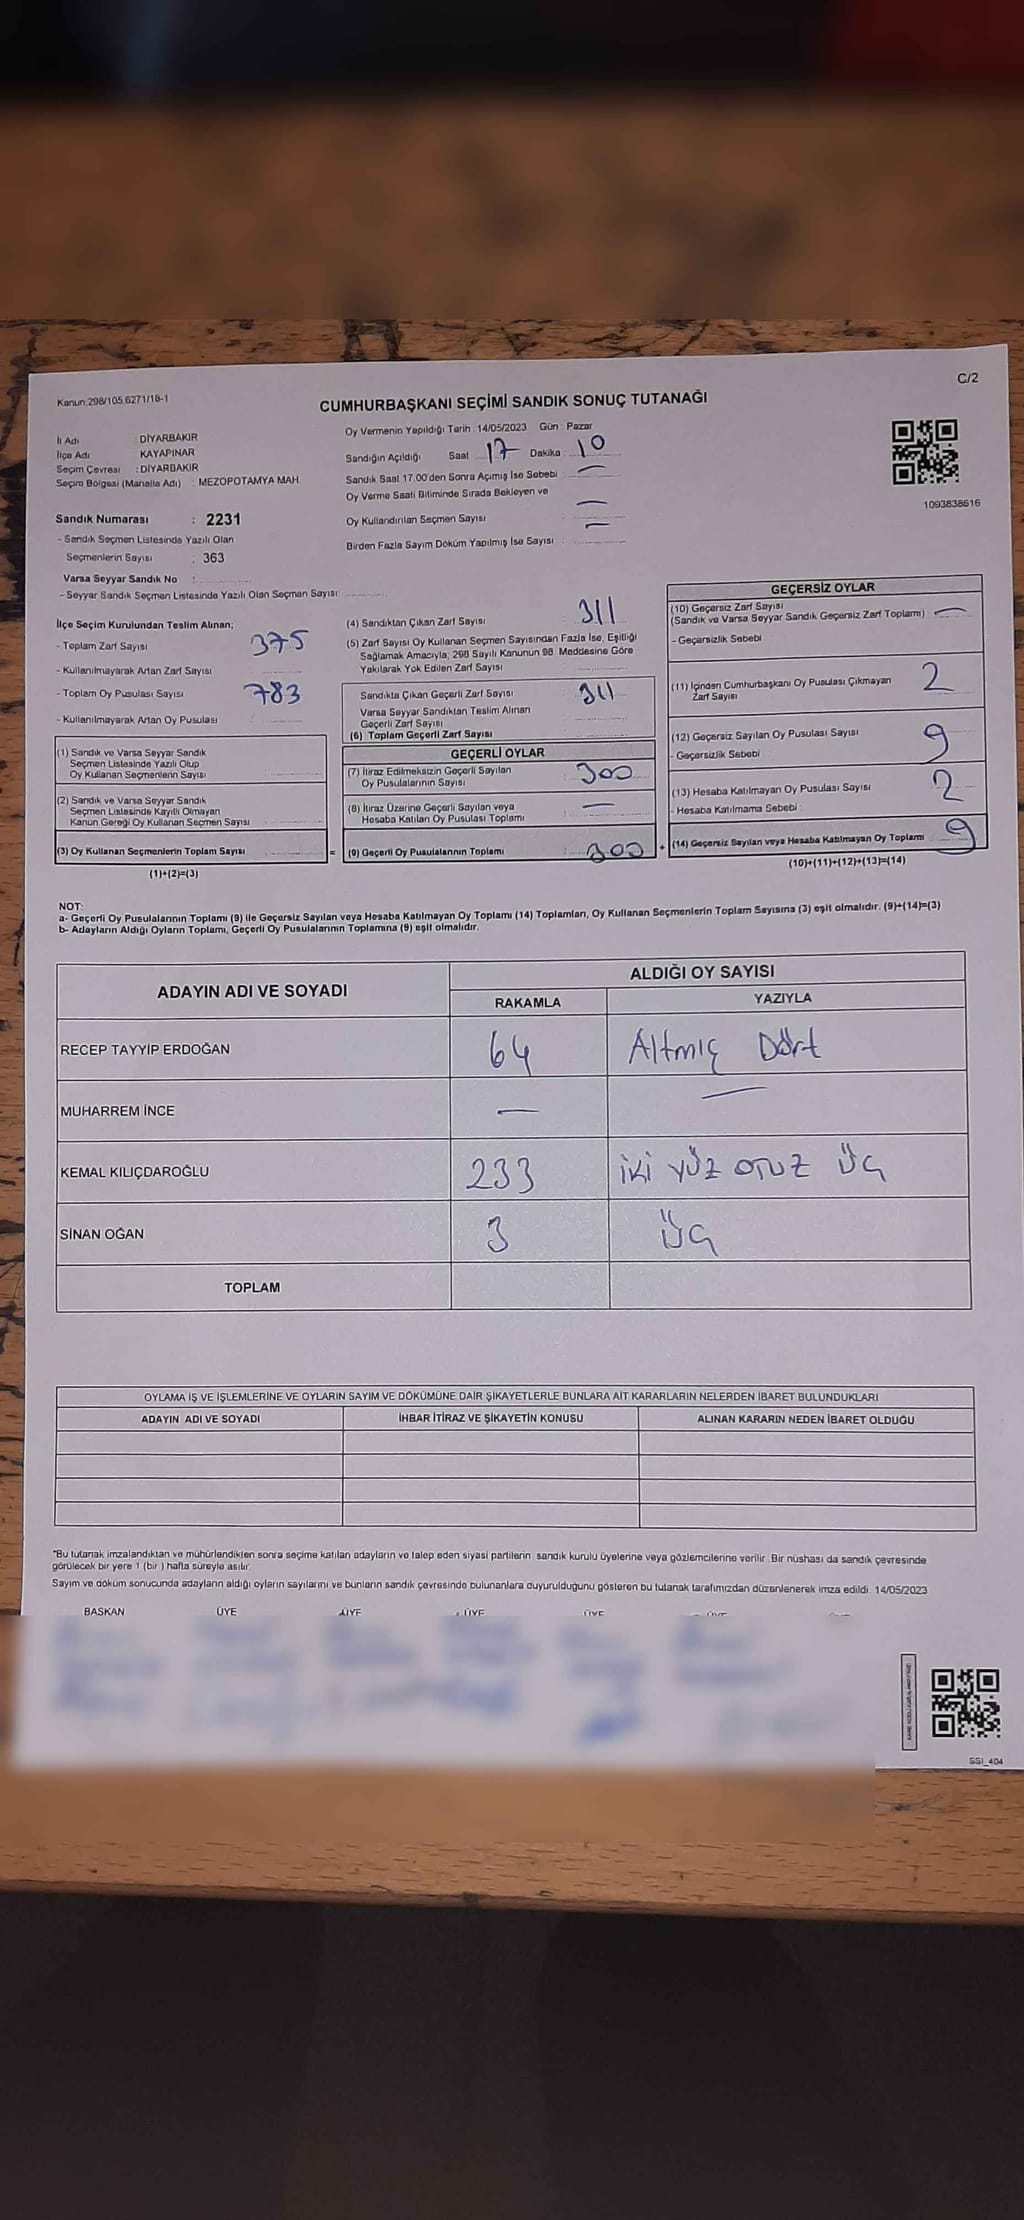 Kanun:298/105,6271/18-1
C/2
CUMHURBAŞKANI SEÇİMİ SANDIK SONUÇ TUTANAĞI
İl Adı : DİYARBAKIR
İlçe Adı : KAYAPINAR
Seçim Çevresi : DİYARBAKIR
Seçim Bölgesi (Mahalle Adı) : MEZOPOTAMYA MAH.
Oy Vermenin Yapıldığı Tarih : 14/05/2023 Gün : Pazar
Sandığın Açıldığı Saat 17 Dakika 10
Sandık Saat 17.00'den Sonra Açılmış İse Sebebi : —
Oy Verme Saati Bitiminde Sırada Bekleyen ve
Oy Kullandırılan Seçmen Sayısı : —
Birden Fazla Sayım Döküm Yapılmış İse Sayısı : —
1093838616
Sandık Numarası : 2231
- Sandık Seçmen Listesinde Yazılı Olan
Seçmenlerin Sayısı : 363
Varsa Seyyar Sandık No :
- Seyyar Sandık Seçmen Listesinde Yazılı Olan Seçmen Sayısı:
İlçe Seçim Kurulundan Teslim Alınan;
- Toplam Zarf Sayısı : 375
- Kullanılmayarak Artan Zarf Sayısı :
- Toplam Oy Pusulası Sayısı : 783
- Kullanılmayarak Artan Oy Pusulası :
(1) Sandık ve Varsa Seyyar Sandık
Seçmen Listesinde Yazılı Olup
Oy Kullanan Seçmenlerin Sayısı :
(2) Sandık ve Varsa Seyyar Sandık
Seçmen Listesinde Kayıtlı Olmayan
Kanun Gereği Oy Kullanan Seçmen Sayısı :
(3) Oy Kullanan Seçmenlerin Toplam Sayısı : =
(1)+(2)=(3)
(4) Sandıktan Çıkan Zarf Sayısı : 311
(5) Zarf Sayısı Oy Kullanan Seçmen Sayısından Fazla İse, Eşitliği
Sağlamak Amacıyla, 298 Sayılı Kanunun 98. Maddesine Göre
Yakılarak Yok Edilen Zarf Sayısı :
Sandıkta Çıkan Geçerli Zarf Sayısı : 311
Varsa Seyyar Sandıktan Teslim Alınan
Geçerli Zarf Sayısı :
(6) Toplam Geçerli Zarf Sayısı :
GEÇERLİ OYLAR
(7) İtiraz Edilmeksizin Geçerli Sayılan
Oy Pusulalarının Sayısı : 300
(8) İtiraz Üzerine Geçerli Sayılan veya
Hesaba Katılan Oy Pusulası Toplamı : —
(9) Geçerli Oy Pusulalarının Toplamı : 300 +
GEÇERSİZ OYLAR
(10) Geçersiz Zarf Sayısı
(Sandık ve Varsa Seyyar Sandık Geçersiz Zarf Toplamı) : —
- Geçersizlik Sebebi :
(11) İçinden Cumhurbaşkanı Oy Pusulası Çıkmayan
Zarf Sayısı 2
(12) Geçersiz Sayılan Oy Pusulası Sayısı 9
- Geçersizlik Sebebi :
(13) Hesaba Katılmayan Oy Pusulası Sayısı 2
- Hesaba Katılmama Sebebi :
(14) Geçersiz Sayılan veya Hesaba Katılmayan Oy Toplamı 9
(10)+(11)+(12)+(13)=(14)
NOT:
a- Geçerli Oy Pusulalarının Toplamı (9) ile Geçersiz Sayılan veya Hesaba Katılmayan Oy Toplamı (14) Toplamları, Oy Kullanan Seçmenlerin Toplam Sayısına (3) eşit olmalıdır. (9)+(14)=(3)
b- Adayların Aldığı Oyların Toplamı, Geçerli Oy Pusulalarının Toplamına (9) eşit olmalıdır.
ADAYIN ADI VE SOYADI ALDIĞI OY SAYISI
RAKAMLA YAZIYLA
RECEP TAYYİP ERDOĞAN 64 Altmış Dört
MUHARREM İNCE — —
KEMAL KILIÇDAROĞLU 233 iki yüz otuz üç
SİNAN OĞAN 3 üç
TOPLAM
OYLAMA İŞ VE İŞLEMLERİNE VE OYLARIN SAYIM VE DÖKÜMÜNE DAİR ŞİKAYETLERLE BUNLARA AİT KARARLARIN NELERDEN İBARET BULUNDUKLARI
ADAYIN ADI VE SOYADI İHBAR İTİRAZ VE ŞİKAYETİN KONUSU ALINAN KARARIN NEDEN İBARET OLDUĞU
*Bu tutanak imzalandıktan ve mühürlendikten sonra seçime katılan adayların ve talep eden siyasi partilerin sandık kurulu üyelerine veya gözlemcilerine verilir. Bir nüshası da sandık çevresinde
görülecek bir yere 1 (bir ) hafta süreyle asılır.
Sayım ve döküm sonucunda adayların aldığı oyların sayılarını ve bunların sandık çevresinde bulunanlara duyurulduğunu gösteren bu tutanak tarafımızdan düzenlenerek imza edildi. 14/05/2023
BAŞKAN ÜYE ÜYE ÜYE ÜYE ÜYE
SSI_404